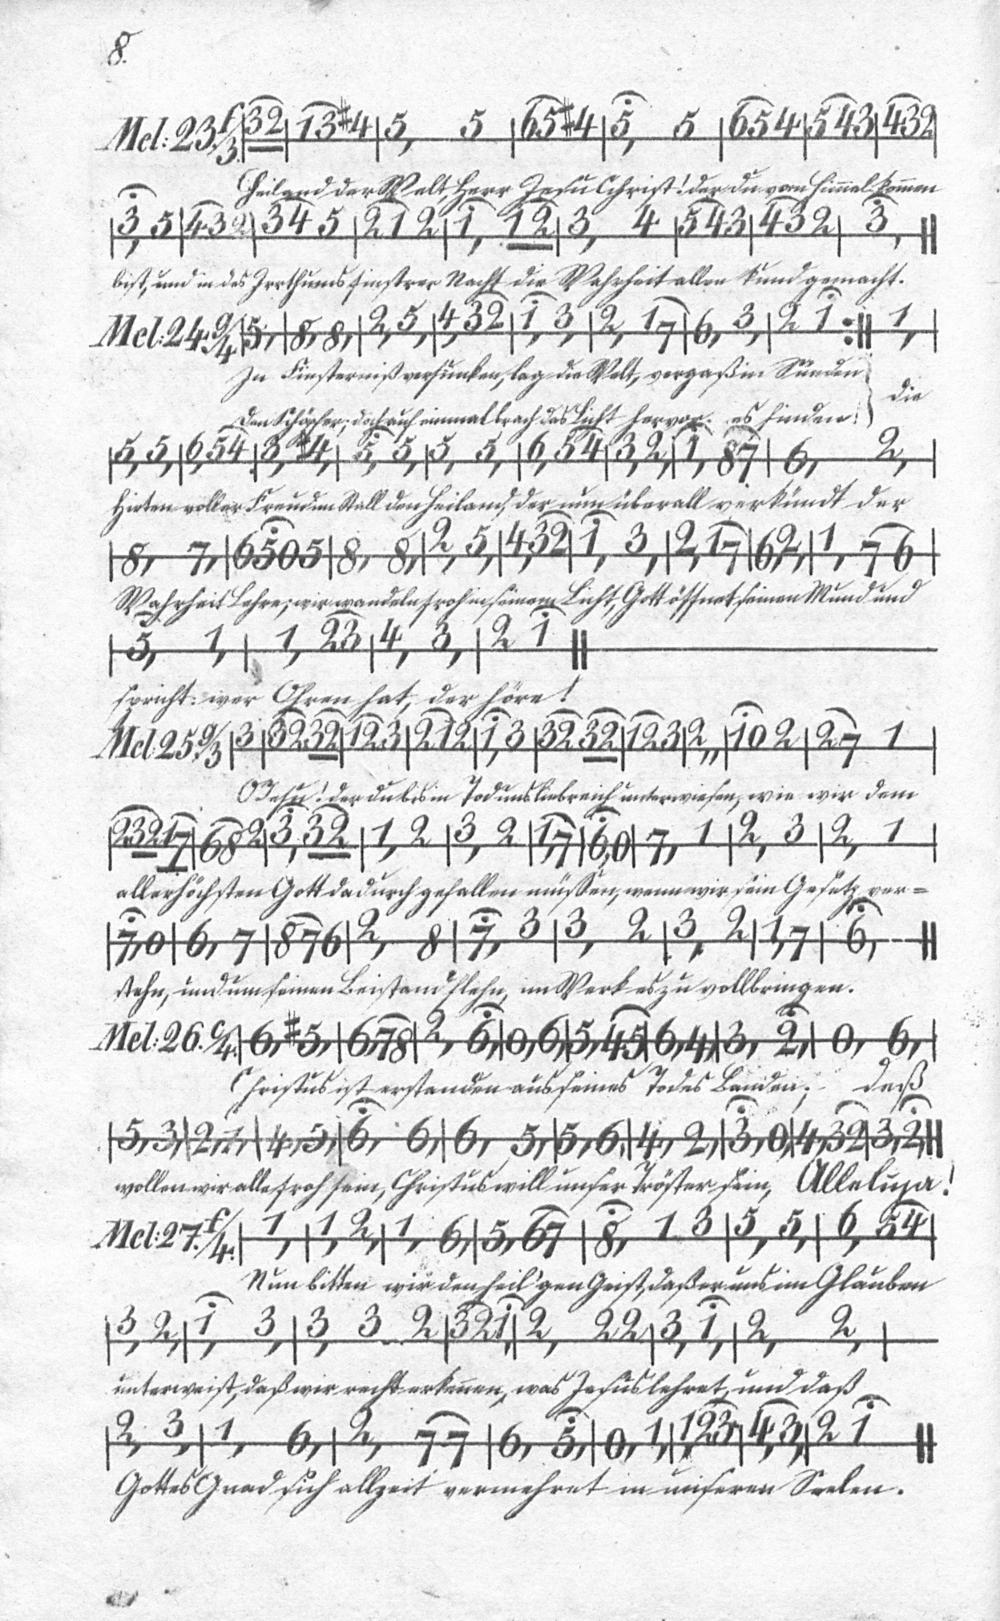 8.
Mel: 23. f/3 | 32 | 13 #4 | 5, 5 | 65 #4 | 5, 5 | 654 | 543 | 432 |
Heiland der Welt, Herr Jesu Christ! der du vom Himmel kommen
| 3, 5 | 432 | 34 5 | 212 | 1, 12 | 3, 4 | 543 | 432 | 3, ||
bist, und in des Irrthums finstrer Nacht die Wahrheit allen kund gemacht.
Mel: 24. g/4 | 5, | 8, 8, | 2, 5, | 4, 32 | 1, 3, | 2, 17 | 6, 3, | 2 1 :|| 1, |
In Finsterniß versunken, lag die Welt, vergaß in Sünden
den Schöpfer; doch auf einmal brach das Licht hervor. es finden die
| 5, 5, | 6, 54 | 3, #4, | 5, 5, | 5, 5, | 6, 54 | 3, 2, | 1, 87 | 6, 2, |
Hirten voller Freud im Stall den Heiland, der nun überall verkündt der
| 8, 7, | 6505 | 8, 8, | 2, 5, | 4, 32 | 1, 3, | 2, 17 | 6, 2, | 1, 76 |
Wahrheit Lehre; wir wandeln froh in seinem Licht, Gott öffnet seinen Mund und
| 5, 1, | 1, 23 | 4, 3, | 2 1 ||
spricht: wer Ohren hat, der höre!
Mel: 25. g/3 | 3 | 3232 | 123 | 212 | 1, 3 | 32 32 | 123 | 2,, | 10 2 | 27 1 |
O Jesu! der du bis in Tod uns liebreich unterwiesen, wie wir dem
| 23217 | 682 | 3, 32 | 1, 2 | 3, 2 | 1, 7 | 6, 0 | 7, 1 | 2, 3 | 2, 1 |
allerhöchsten Gott dadurch gefallen müssen, wenn wir sein Gesetz ver=
| 7, 0 | 6, 7 | 876 | 2, 8 | 7, 3 | 3, 2 | 3, 2 | 1, 7 | 6, ||
stehn, und um seinen Beistand flehn, im Werk es zu vollbringen.
Mel: 26. c/4 | 6, #5, | 6, 78 | 2, 6, | 0, 6, | 5, 45 | 6, 4, | 3, 2, | 0, 6, |
Christus ist erstanden aus seines Todes Banden; deß
| 5, 3, | 2, 1, | 4, 5, | 6, 6, | 6, 5, | 5, 6, | 4, 2, | 3, 0, | 4, 32 | 3, 2, ||
wollen wir alle froh sein, Christus will unser Tröster sein, Alleluja!
Mel: 27. f/4. | 1, | 1, 2, | 1, 6, | 5, 67 | 8, 1 3 | 5, 5, | 6, 54 |
Nun bitten wir den heil'gen Geist, daß er uns im Glauben
| 3 2, | 1, 3, | 3 3 2 | 321 | 2, 22 | 3, 1, | 2, 2, |
unterweist, daß wir recht erkennen, was Jesus lehret, und daß
| 2, 3, | 1, 6, | 2, 77 | 6, 5, | 0, 1, | 123 | 4, 3, | 2 1 ||
Gottes Gnad sich allzeit vermehret in unseren Seelen.